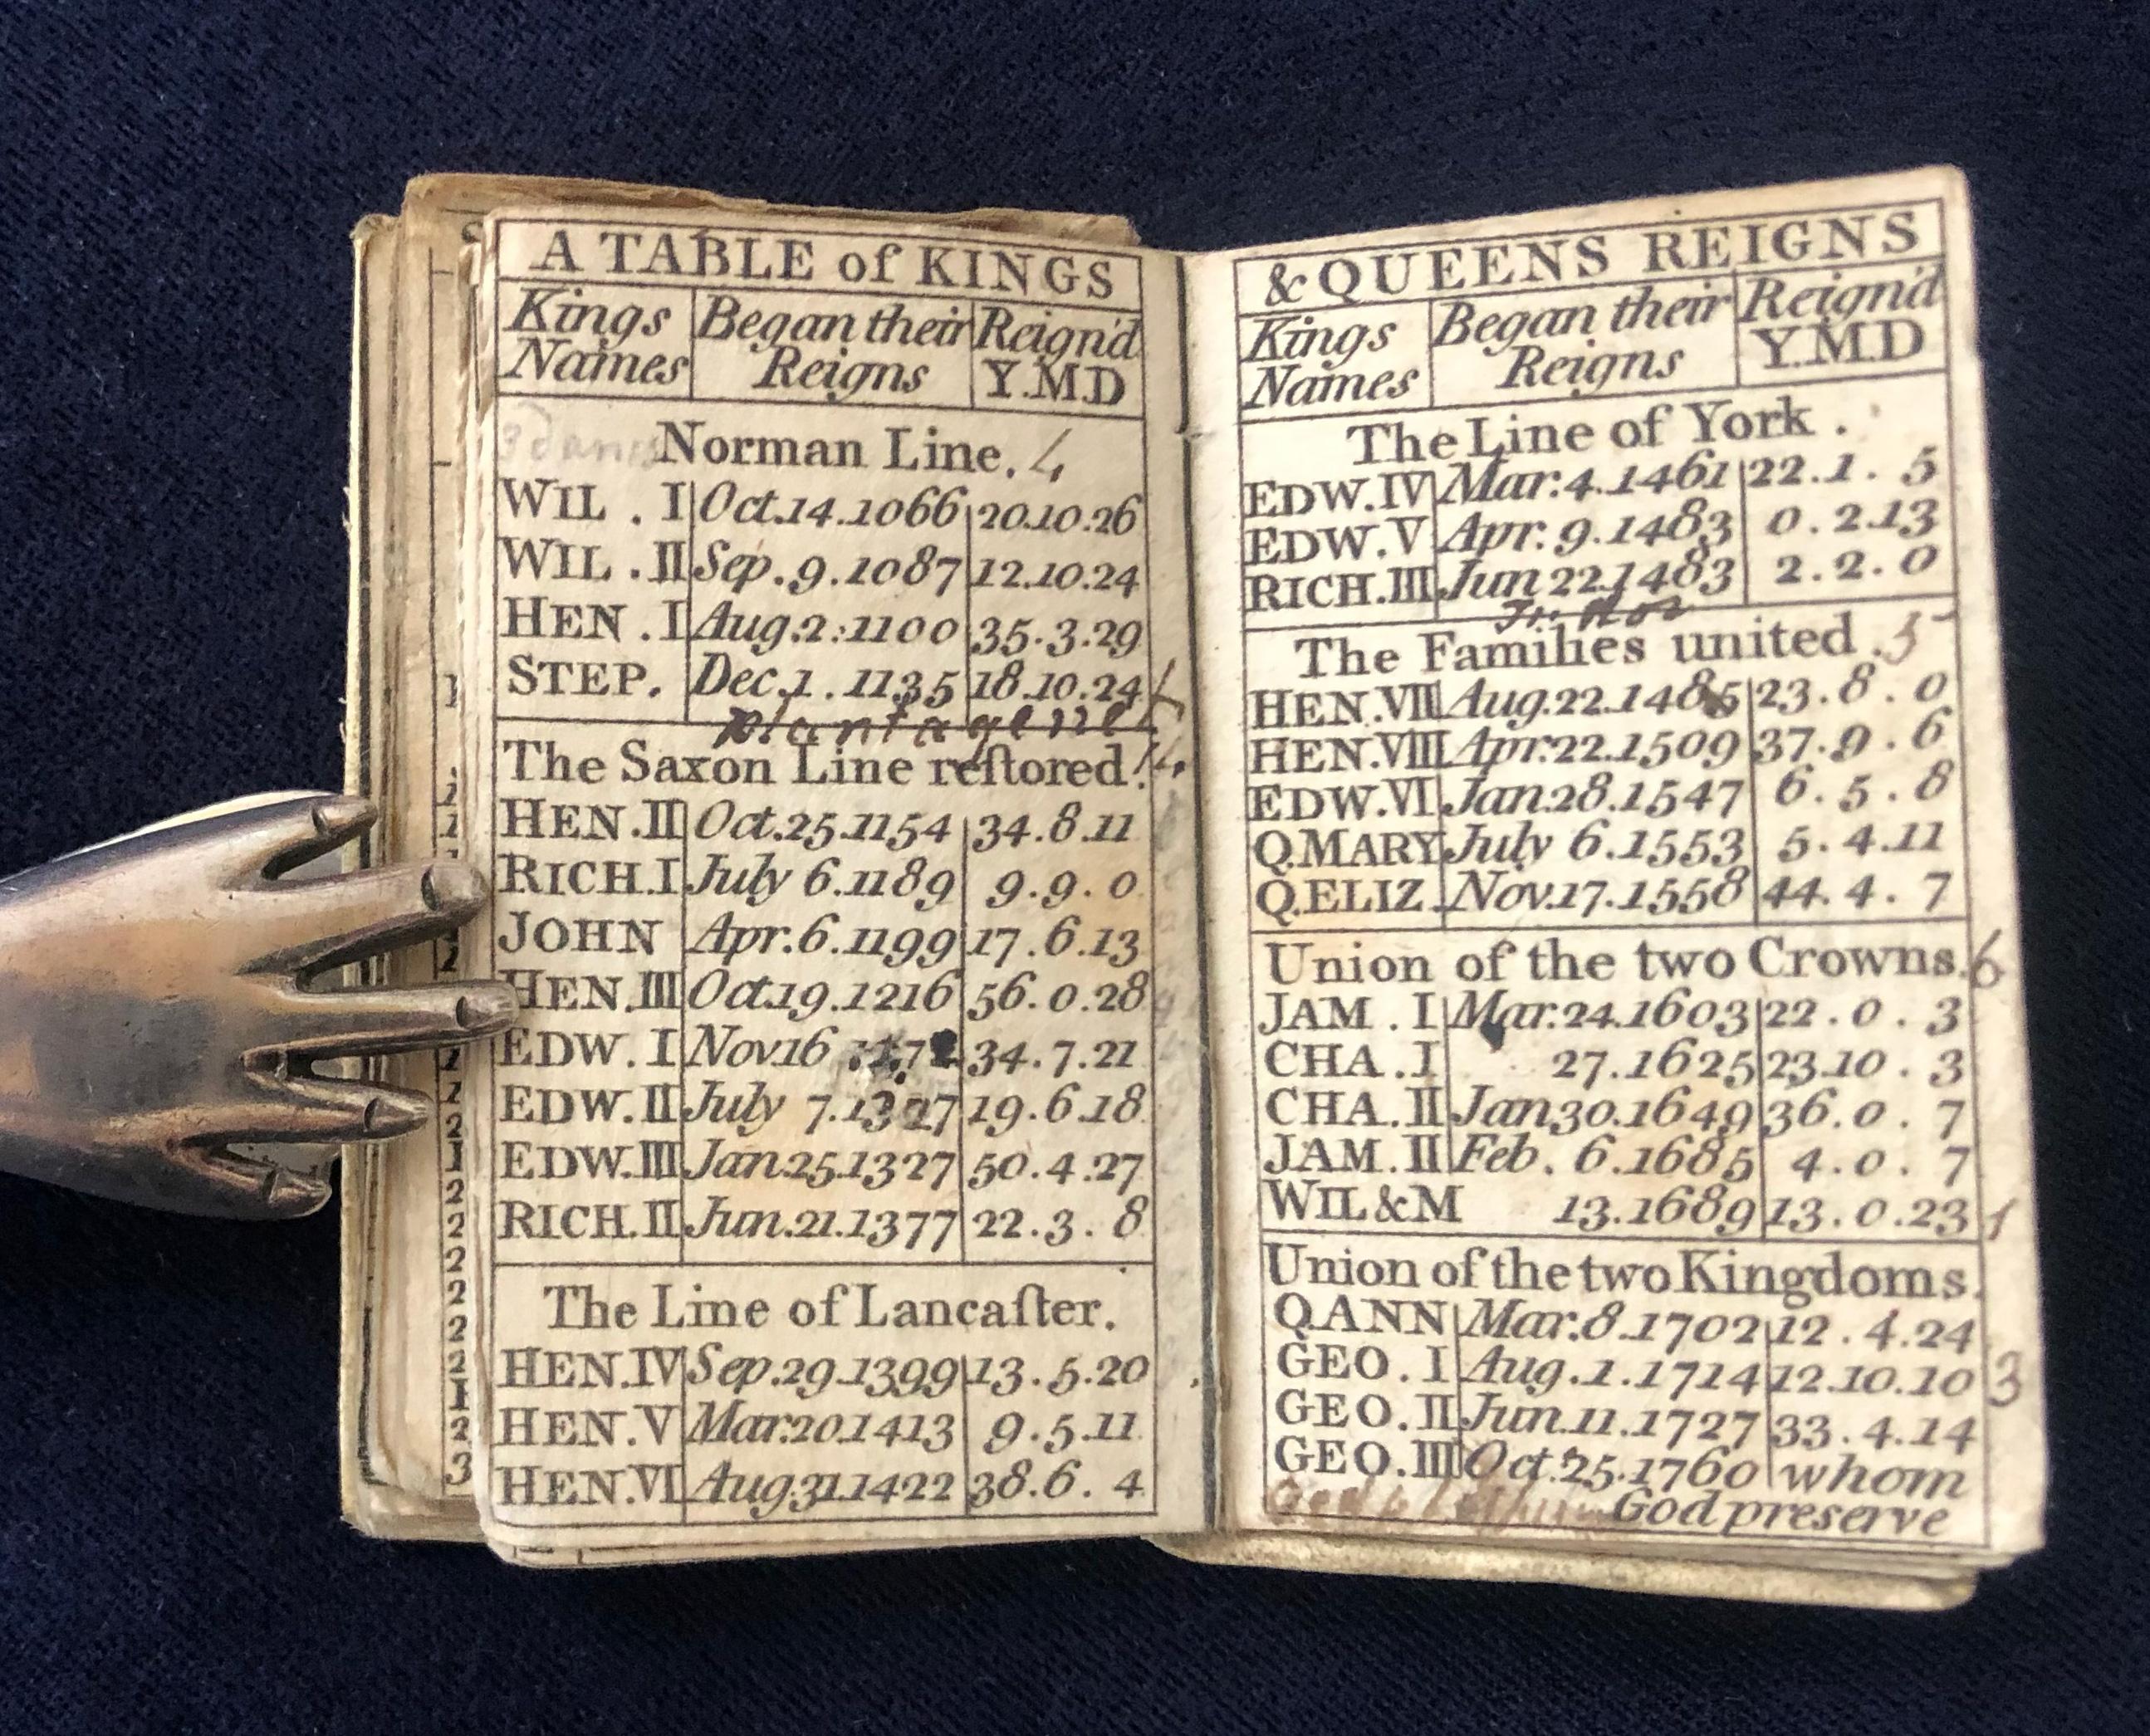 A TABLE of KINGS
Kings Names Began their Reigns Reign'd Y.M.D
Norman Line. 4
WIL . I Oct.14.1066 20.10.26
WIL . II Sep.9.1087 12.10.24
HEN . I Aug.2.1100 35.3.29
STEP. Dec.1.1135 18.10.24
plantagenet
The Saxon Line reſtored. 14
HEN.II Oct.25.1154 34.8.11
RICH.I July 6.1189 9.9.0
JOHN Apr.6.1199 17.6.13
HEN.III Oct.19.1216 56.0.28
EDW.I Nov16 34.7.21
EDW.II July 7. 19.6.18
EDW.III Jan.25.1327 50.4.27
RICH.II Jun.21.1377 22.3.8
The Line of Lancaſter.
HEN.IV Sep.29.1399 13.5.20
HEN.V Mar.20.1413 9.5.11
HEN.VI Aug.31.1422 38.6.4
& QUEENS REIGNS
Kings Names Began their Reigns Reign'd Y.M.D
The Line of York .
EDW.IV Mar.4.1461 22.1.5
EDW.V Apr.9.1483 0.2.13
RICH.III Jun 22.1483 2.2.0
The Families united . 5
HEN.VII Aug.22.1485 23.8.0
HEN.VIII Apr.22.1509 37.9.6
EDW.VI Jan.28.1547 6.5.8
Q.MARY July 6.1553 5.4.11
Q.ELIZ. Nov.17.1558 44.4.7
Union of the two Crowns. 6
JAM . I Mar.24.1603 22.0.3
CHA . I 27.1625 23.10.3
CHA . II Jan.30.1649 36.0.7
JAM . II Feb. 6.1685 4.0.7
WIL&M 13.1689 13.0.23
Union of the two Kingdoms.
Q.ANN Mar.8.1702 12.4.24
GEO . I Aug.1.1714 12.10.10 3
GEO . II Jun.11.1727 33.4.14
GEO . III Oct.25.1760 whom
God preserve